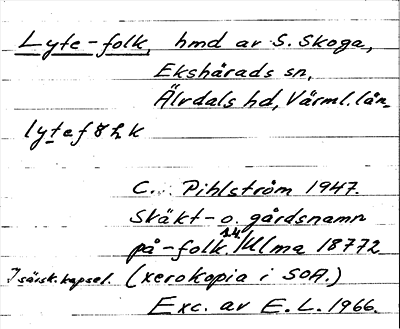 Lyte-folk, hmd av S. Skoga,
Ekshärads sn,
Älvdals hd, Värml. län.
C. Pihlström 1947.
Släkt- o. gårdsnamn
på -folk. s. 14 /Ulma 18772
I särsk. kapsel. (xerokopia i SOA.)
Exc. av E. L. 1966.